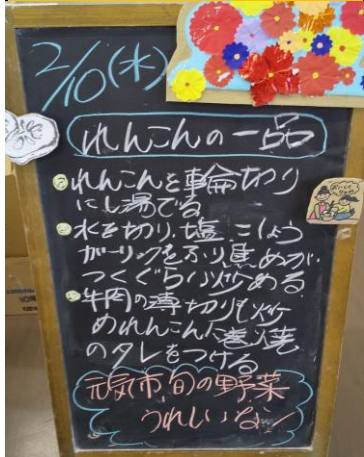 2/10(水)
れんこんの一品
れんこんを輪切り
にし湯でる
水を切り、塩、こしょう
ガーリックをふり焦めが
つくぐらい炒める
牛肉の薄切りも炒
めれんこんに巻焼
のタレをつける
元気市旬の野菜
うれしいな!